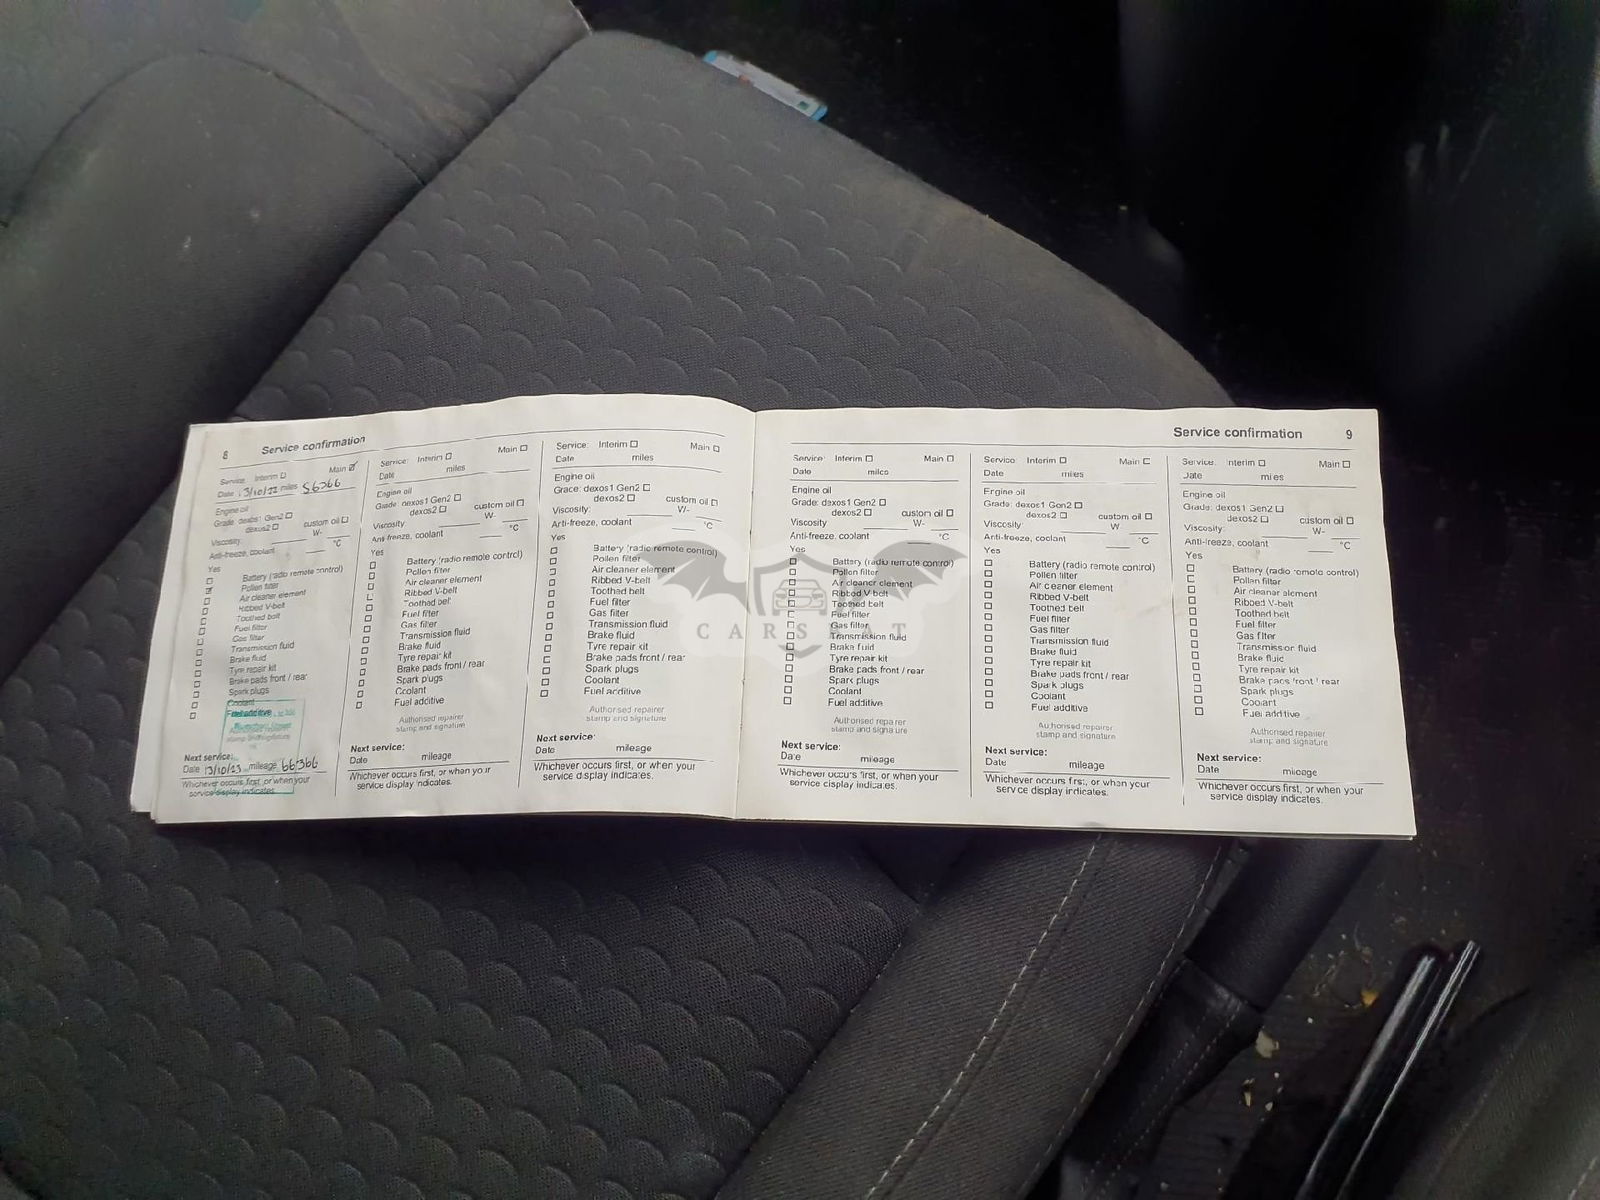 8 Service confirmation
Service: Interim Main
Date 13/10/22 miles 56366
Engine oil
Grade: dexos1 Gen2
dexos2 custom oil
Viscosity: W-
Anti-freeze, coolant °C
Yes
Battery (radio remote control)
Pollen filter
Air cleaner element
Ribbed V-belt
Toothed belt
Fuel filter
Gas filter
Transmission fluid
Brake fluid
Tyre repair kit
Brake pads front / rear
Spark plugs
Coolant
Fuel additive
Authorised repairer
stamp and signature
Next service:
Date 13/10/23 mileage 66366
Whichever occurs first, or when your
service display indicates.
Service: Interim Main
Date miles
Engine oil
Grade: dexos1 Gen2
dexos2 custom oil
Viscosity W-
Anti-freeze, coolant °C
Yes
Battery (radio remote control)
Pollen filter
Air cleaner element
Ribbed V-belt
Toothed belt
Fuel filter
Gas filter
Transmission fluid
Brake fluid
Tyre repair kit
Brake pads front / rear
Spark plugs
Coolant
Fuel additive
Authorised repairer
stamp and signature
Next service:
Date mileage
Whichever occurs first, or when your
service display indicates.
Service: Interim Main
Date miles
Engine oil
Grade: dexos1 Gen2
dexos2 custom oil
Viscosity: W-
Anti-freeze, coolant °C
Yes
Battery (radio remote control)
Pollen filter
Air cleaner element
Ribbed V-belt
Toothed belt
Fuel filter
Gas filter
Transmission fluid
Brake fluid
Tyre repair kit
Brake pads front / rear
Spark plugs
Coolant
Fuel additive
Authorised repairer
stamp and signature
Next service:
Date mileage
Whichever occurs first, or when your
service display indicates.
Service confirmation 9
Service: Interim Main
Date miles
Engine oil
Grade: dexos1 Gen2
dexos2 custom oil
Viscosity: W-
Anti-freeze, coolant °C
Yes
Battery (radio remote control)
Pollen filter
Air cleaner element
Ribbed V-belt
Toothed belt
Fuel filter
Gas filter
Transmission fluid
Brake fluid
Tyre repair kit
Brake pads front / rear
Spark plugs
Coolant
Fuel additive
Authorised repairer
stamp and signature
Next service:
Date mileage
Whichever occurs first, or when your
service display indicates.
Service: Interim Main
Date miles
Engine oil
Grade: dexos1 Gen2
dexos2 custom oil
Viscosity: W-
Anti-freeze, coolant °C
Yes
Battery (radio remote control)
Pollen filter
Air cleaner element
Ribbed V-belt
Toothed belt
Fuel filter
Gas filter
Transmission fluid
Brake fluid
Tyre repair kit
Brake pads front / rear
Spark plugs
Coolant
Fuel additive
Authorised repairer
stamp and signature
Next service:
Date mileage
Whichever occurs first, or when your
service display indicates.
Service: Interim Main
Date miles
Engine oil
Grade: dexos1 Gen2
dexos2 custom oil
Viscosity: W-
Anti-freeze, coolant °C
Yes
Battery (radio remote control)
Pollen filter
Air cleaner element
Ribbed V-belt
Toothed belt
Fuel filter
Gas filter
Transmission fluid
Brake fluid
Tyre repair kit
Brake pads front / rear
Spark plugs
Coolant
Fuel additive
Authorised repairer
stamp and signature
Next service:
Date mileage
Whichever occurs first, or when your
service display indicates.
CARSBAT